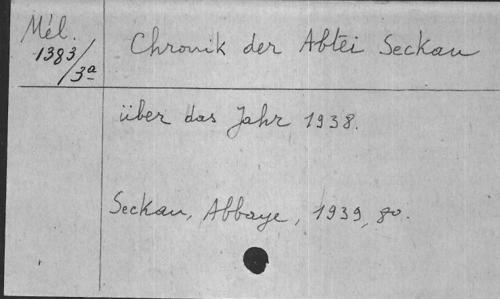 Mél.
1383/3a
Chronik der Abtei Seckau
über das Jahr 1938.
Seckau, Abbaye, 1939, 8o.